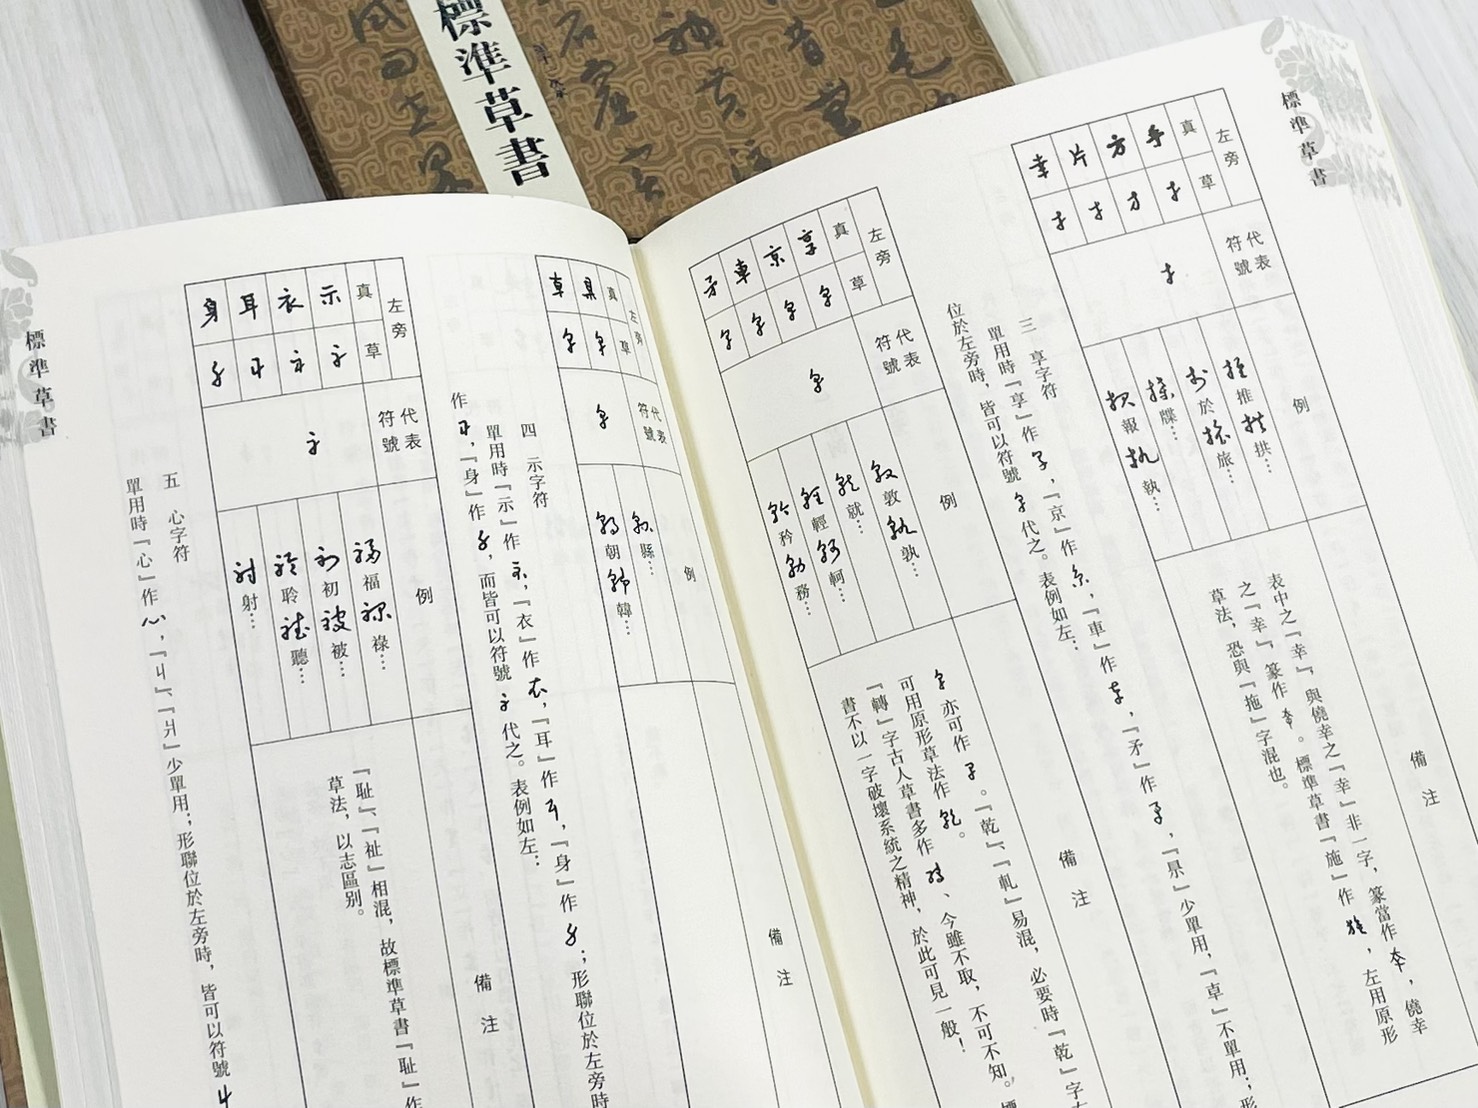 標準草書
標準草書
左旁 代表符號 例 備注
真 草
手
方
片
幸
推 拱…
於 旅…
牒…
報 執…
表中之『幸』,與僥幸之『幸』非一字,篆當作 ,僥幸
之『幸』,篆作 。標準草書『施』作 ,左用原形
草法,恐與『拖』字混也。
三 享字符
單用時『享』作 ,『京』作 ,『車』作 ,『矛』作 ,『㫗』少單用,『卓』不單用;形
位於左旁時,皆可以符號 代之。表例如左:
左旁 代表符號 例 備注
真 草
享
京
車
矛
敦 孰…
就…
輕 軻…
矜 務…
亦可作 。『乾』、『軋』易混,必要時『乾』字右
可用原形草法作 。
『轉』字古人草書多作 、今雖不取,不可不知。標
書不以一字破壞系統之精神,於此可見一般!
標準草書
左旁 代表符號 例 備注
真 草
県
卓
縣…
朝 韓…
四 示字符
單用時『示』作 ,『衣』作 ,『耳』作 ,『身』作 ;形聯位於左旁時
作 ,『身』作 ,而皆可以符號 代之。表例如左:
左旁 代表符號 例 備注
真 草
示
衣
耳
身
福 祿…
初 被…
聆 聽…
射…
『耻』、『祉』相混,故標準草書『耻』作
草法,以志區別。
五 心字符
單用時『心』作 ,『丩』、『爿』少單用;形聯位於左旁時,皆可以符號